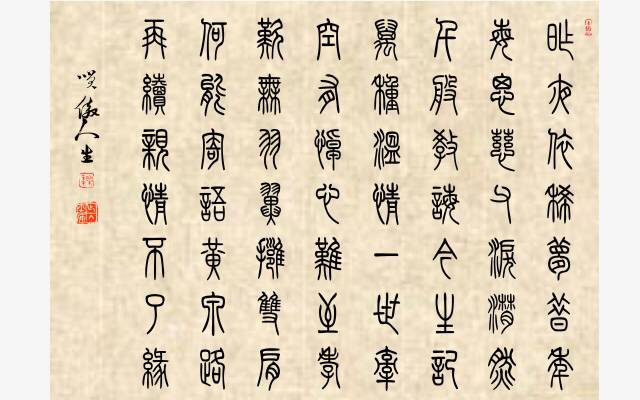 昨夜依稀夢昔年
每思慈父淚潸然
千般教誨今生記
萬種溫情一世牽
空有悼心難至孝
歎無羽翼擁雙肩
何能寄語黃泉路
再續親情不了緣
咲傲人生